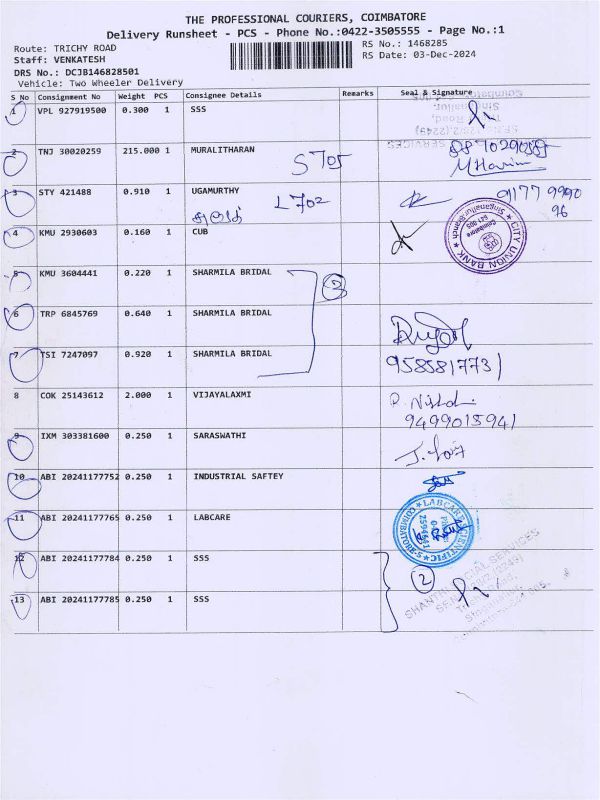 THE PROFESSIONAL COURIERS, COIMBATORE
Delivery Runsheet - PCS - Phone No.:0422-3505555 - Page No.:1
Route: TRICHY ROAD
RS No.: 1468285
Staff: VENKATESH
RS Date: 03-Dec-2024
DRS No.: DCJB146828501
Vehicle: Two Wheeler Delivery
S No Consignment No Weight PCS Consignee Details Remarks Seal & Signature
1 VPL 927919500 0.300 1 SSS
2 TNJ 30020259 215.000 1 MURALITHARAN
S 705
3 STY 421488 0.910 1 UGAMURTHY
L 702
91177 9990
96
4 KMU 2930603 0.160 1 CUB
CITY UNION BANK
Singanallur Branch
Coimbatore
641 005
5 KMU 3604441 0.220 1 SHARMILA BRIDAL
3
6 TRP 6845769 0.640 1 SHARMILA BRIDAL
7 TSI 7247097 0.920 1 SHARMILA BRIDAL
9585817731
8 COK 25143612 2.000 1 VIJAYALAXMI
9499015941
9 IXM 303381600 0.250 1 SARASWATHI
10 ABI 20241177752 0.250 1 INDUSTRIAL SAFTEY
11 ABI 20241177765 0.250 1 LABCARE
LABCARE SCIENTIFIC
12 ABI 20241177784 0.250 1 SSS
2
13 ABI 20241177785 0.250 1 SSS